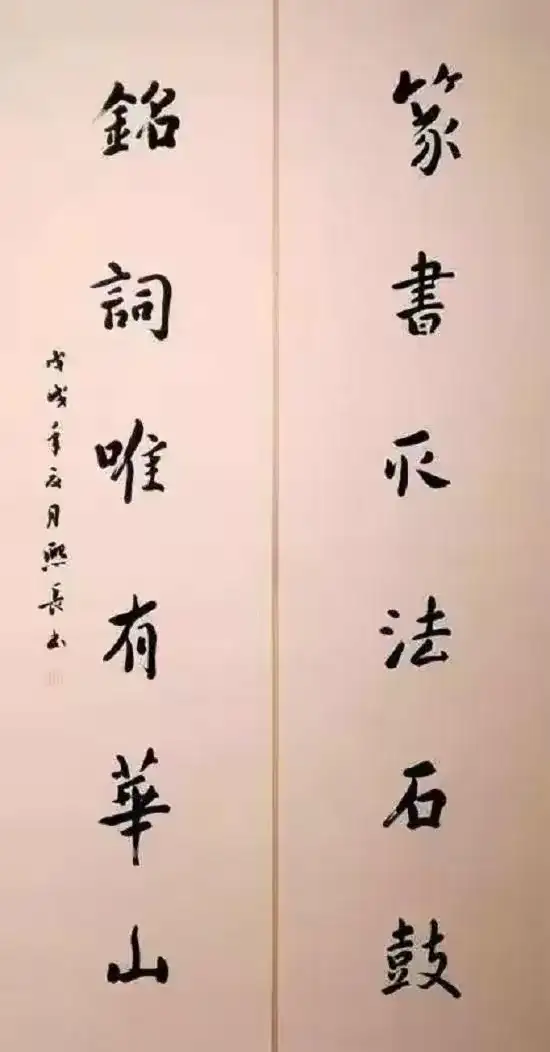 篆書取法石鼓
銘詞唯有華山
戊戌年夏月熙長书